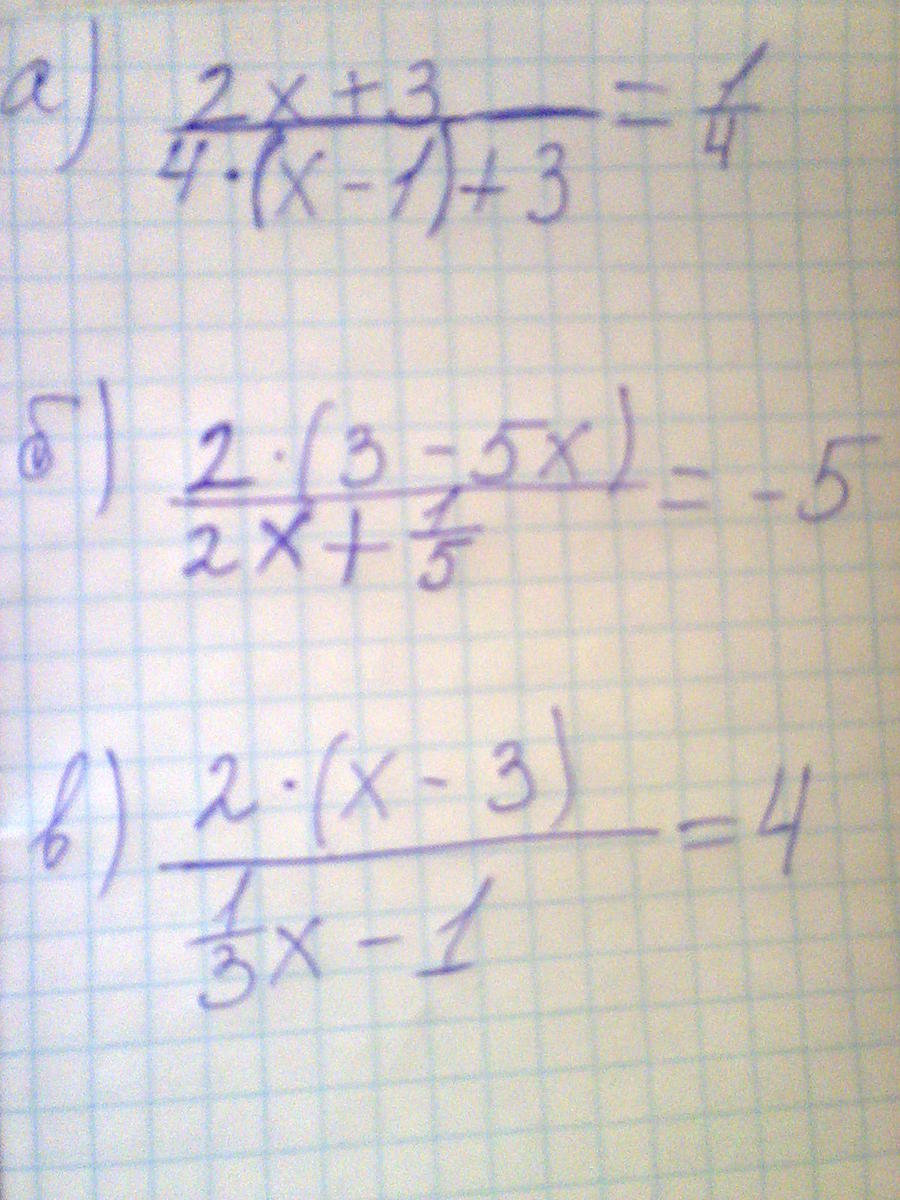 а) (2x+3)/(4·(x-1)+3) = 1/4
б) (2·(3-5x))/(2x+1/5) = -5
в) (2·(x-3))/(1/3x-1) = 4